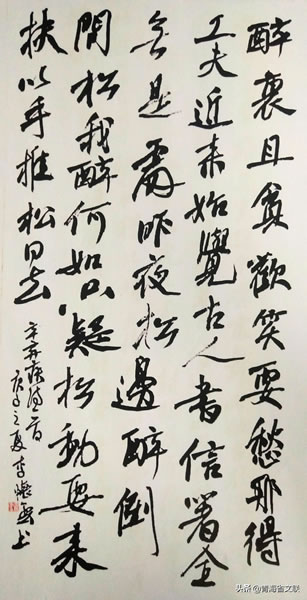 醉裏且貪歡笑要愁那得
工夫近来始覺古人書信著全
無是處昨夜松邊醉倒
問松我醉何如只疑松動要来
扶以手推松曰去
辛弃疾词一首
庚子之夏李
头条 @青海省文联